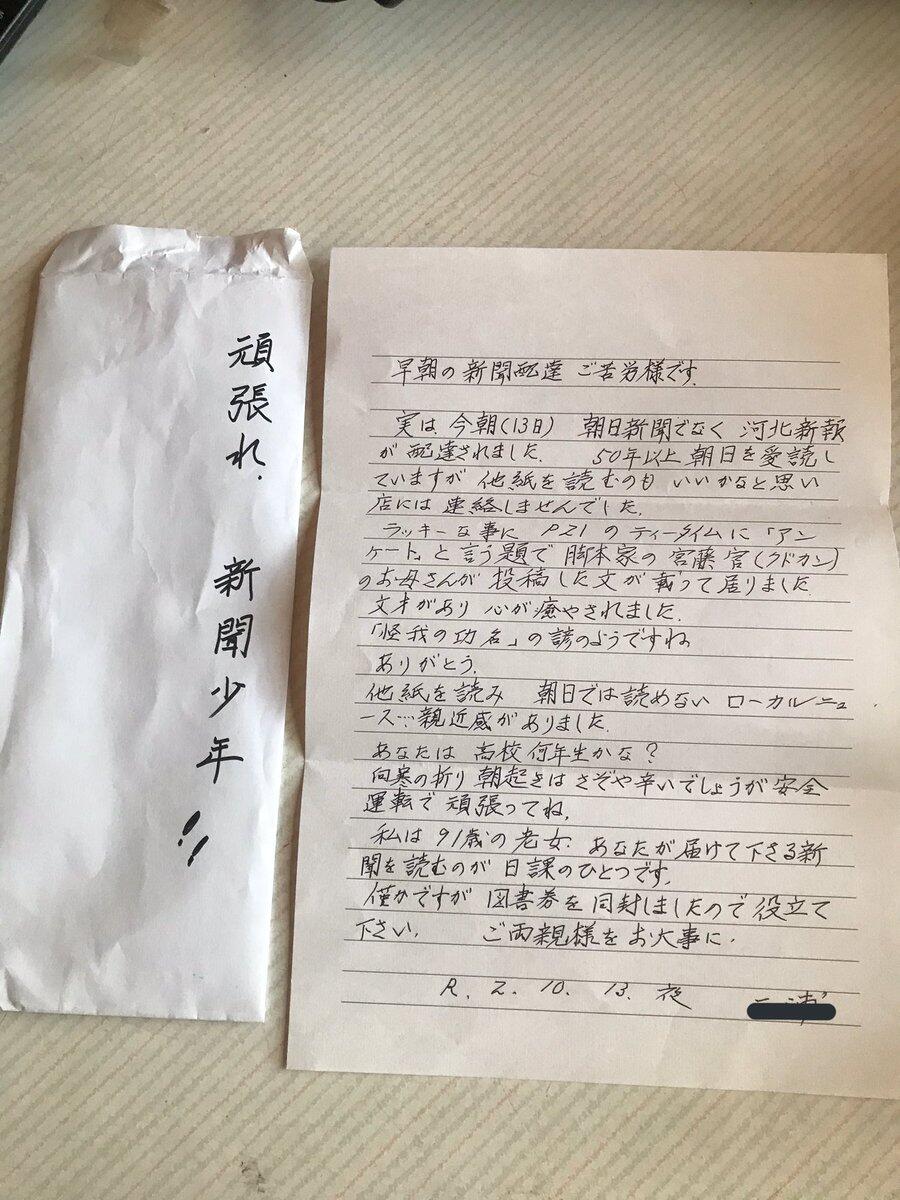 頑張れ. 新聞少年!!
早朝の新聞配達 ご苦労様です.
実は 今朝(13日) 朝日新聞でなく 河北新報
が 配達されました. 50年以上 朝日を愛読し
ていますが 他紙を読むのも いいかなと思い
店には 連絡しませんでした.
ラッキーな事に P21 の ティータイムに「アン
ケート」と言う題で 脚本家の 宮藤 官(クドカン)
のお母さんが 投稿した文が 載って居りました
文才があり 心が癒やされました.
「怪我の功名」の諺のようですね
ありがとう.
他紙を読み 朝日では読めない ローカルニュ
ース…親近感がありました.
あなたは 高校何年生かな?
向寒の折り 朝起きは さぞや辛いでしょうが 安全
運転で 頑張ってね.
私は 91歳の老女. あなたが届けて下さる新
聞を読むのが 日課のひとつです.
僅かですが 図書券を同封しましたので役立て
下さい. ご両親様をお大事に.
R. 2. 10. 13. 夜